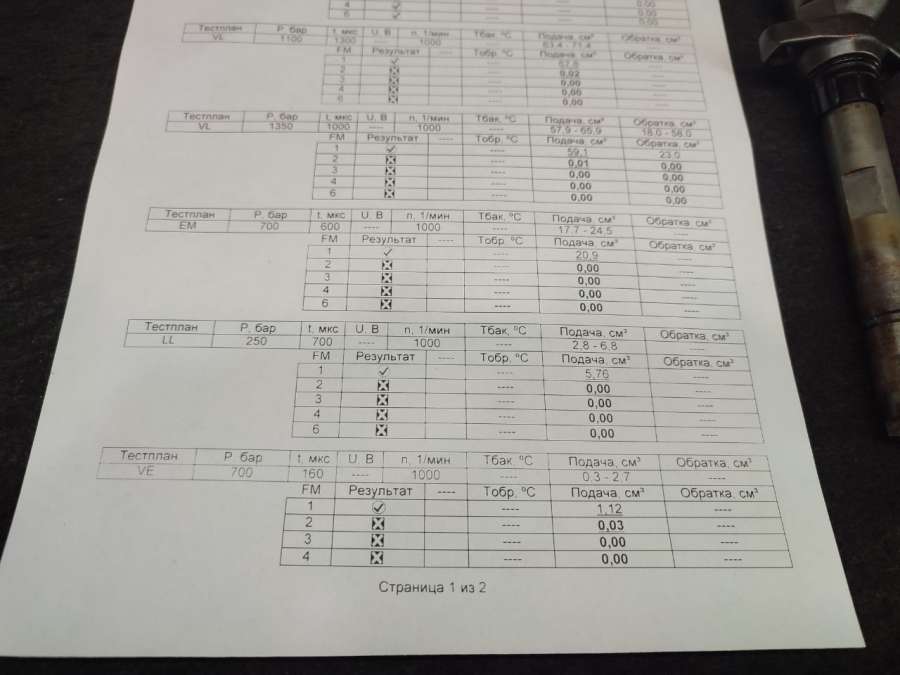 4 0.00
6 0.00
0.00
Тестплан P, бар t, мкс U, В n, 1/мин Тбак, ºC Подача, см³ Обратка, см³
VL 1100 1300 1000 63.4 - 71.4
FM Результат ---- Тобр, ºC Подача, см³ Обратка, см³
1 ---- 67.8 ----
2 ---- 0,02 ----
3 ---- 0,00 ----
4 ---- 0,00 ----
6 ---- 0,00 ----
Тестплан P, бар t, мкс U, В n, 1/мин Тбак, ºC Подача, см³ Обратка, см³
VL 1350 1000 ---- 1000 ---- 57,9 - 65,9 18.0 - 58.0
FM Результат ---- Тобр, ºC Подача, см³ Обратка, см³
1 ---- 59,1 23.0
2 ---- 0,01 0,00
3 ---- 0,00 0,00
4 ---- 0,00 0,00
6 ---- 0,00 0,00
Тестплан P, бар t, мкс U, В n, 1/мин Тбак, ºC Подача, см³ Обратка, см³
EM 700 600 ---- 1000 ---- 17,7 - 24,5 ----
FM Результат ---- Тобр, ºC Подача, см³ Обратка, см³
1 ---- 20,9 ----
2 ---- 0,00 ----
3 ---- 0,00 ----
4 ---- 0,00 ----
6 ---- 0,00 ----
Тестплан P, бар t, мкс U, В n, 1/мин Тбак, ºC Подача, см³ Обратка, см³
LL 250 700 ---- 1000 ---- 2,8 - 6,8 ----
FM Результат ---- Тобр, ºC Подача, см³ Обратка, см³
1 ---- 5,76 ----
2 ---- 0,00 ----
3 ---- 0,00 ----
4 ---- 0,00 ----
6 ---- 0,00 ----
Тестплан P, бар t, мкс U, В n, 1/мин Тбак, ºC Подача, см³ Обратка, см³
VE 700 160 ---- 1000 ---- 0,3 - 2,7 ----
FM Результат ---- Тобр, ºC Подача, см³ Обратка, см³
1 ---- 1,12 ----
2 ---- 0,03 ----
3 ---- 0,00 ----
4 ---- 0,00 ----
Страница 1 из 2